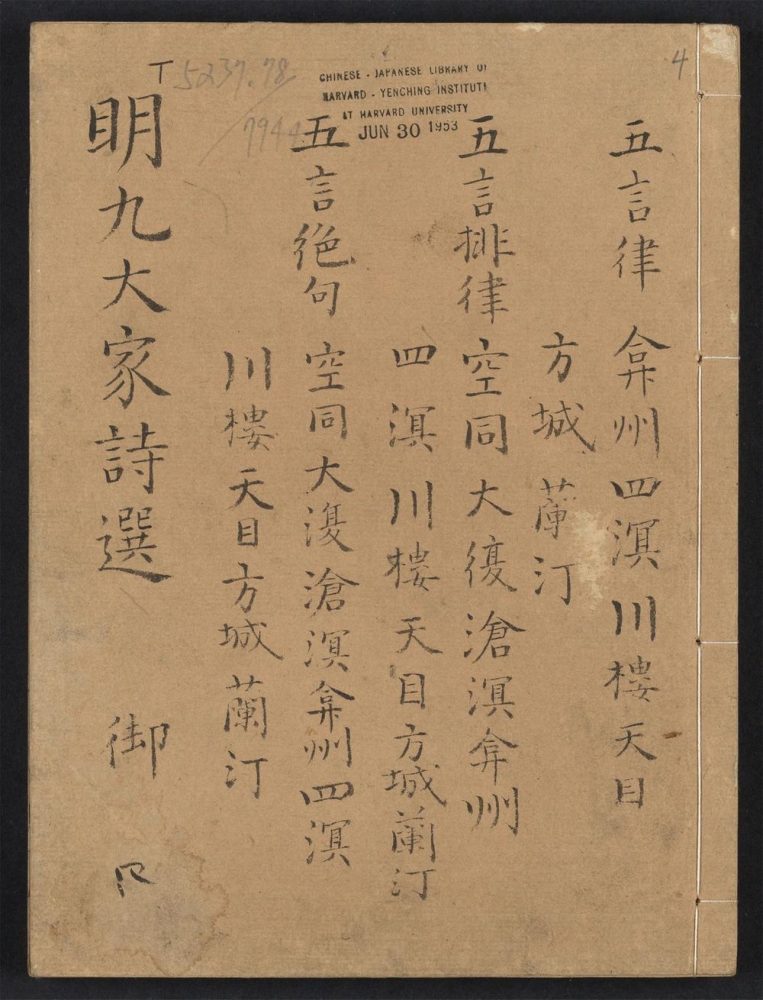 4
CHINESE - JAPANESE LIBRARY OF
HARVARD - YENCHING INSTITUTE
AT HARVARD UNIVERSITY
JUN 30 1953
T 5237.78
7944
五言律 弇州四溟川樓天目
方城 蘭汀
五言排律 空同大復滄溟弇州
四溟川樓天目方城蘭汀
五言絕句 空同大復滄溟弇州四溟
川樓天目方城蘭汀
明九大家詩選 御